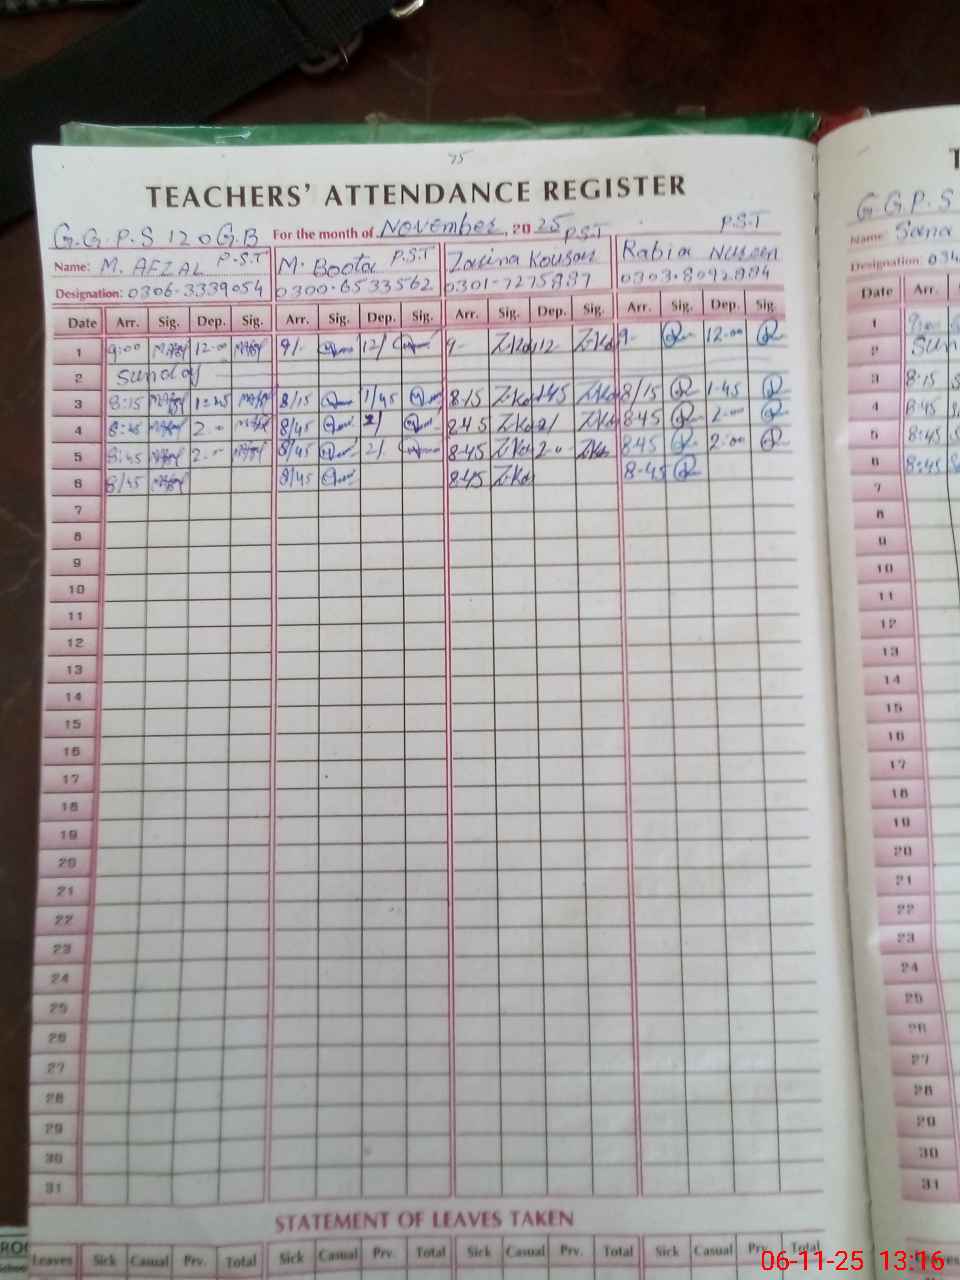 75
TEACHERS' ATTENDANCE REGISTER
G.G.P.S 120 GB For the month of November, 2025 P.S.T P.S.T
Name: M. AFZAL P.S.T M. Boota P.S.T Zarina Kousar Rabia
Designation: 0306-3339054 0300-6533562 0301-7275887 0303-8092884
Date Arr. Sig. Dep. Sig. Arr. Sig. Dep. Sig. Arr. Sig. Dep. Sig. Arr. Sig. Dep. Sig.
1 9:00 12-00 9/- 12/ 9- Z.Kou 12 Z.Kou 9- 12-00
2 Sunday
3 8:15 1:45 8/15 1/45 8-15 Z.Kou 1-45 Z.Kou 8/15 1-45
4 8:45 2-0 8/45 2/ 8 45 Z.Kou 2/ Z.Kou 8-45 2-00
5 8:45 2-0 8/45 2/. 8-45 Z.Kou 2-0 Z.Kou 8-45 2-00
6 8/45 8/45 8-45 Z.Kou 8-45
7
8
9
10
11
12
13
14
15
16
17
18
19
20
21
22
23
24
25
26
27
28
29
30
31
STATEMENT OF LEAVES TAKEN
Leaves Sick Casual Prv. Total Sick Casual Prv. Total Sick Casual Prv. Total Sick Casual Prv. Total
G.G.P.S
Name: Sana
Designation: 034
Date Arr.
1 9:00
2 Sun
3 8:15
4 8:45
5 8:45
6 8:45
7
8
9
10
11
12
13
14
15
16
17
18
19
20
21
22
23
24
25
26
27
28
29
30
31
06-11-25 13:16